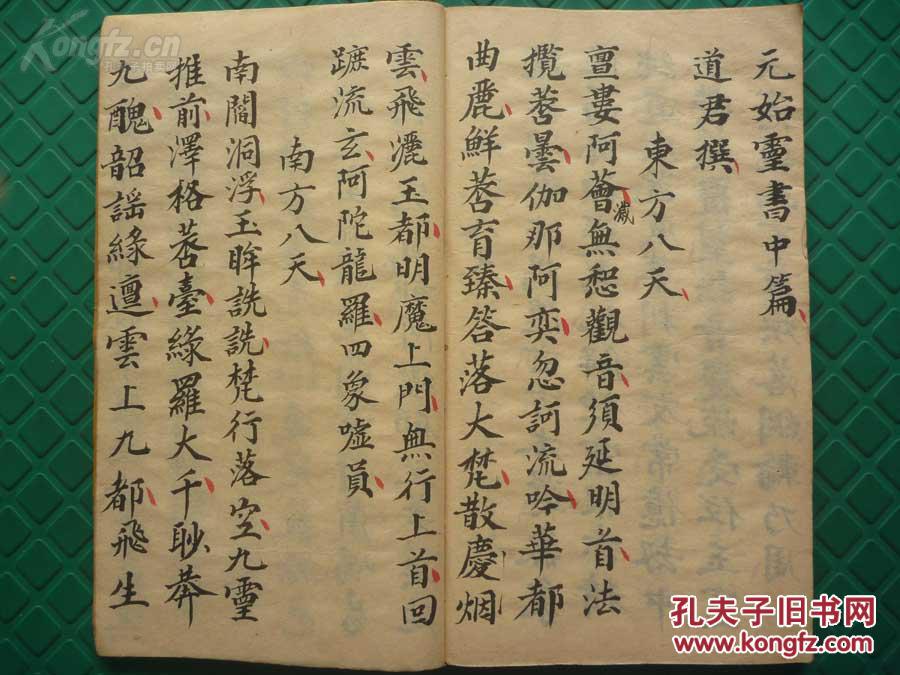 元始靈書中篇
道君撰
東方八天
亶婁阿薈無恕觀音須延明首法
葴
攬菩曇伽那阿奕忽訶流吟華都
曲麗鮮菩育臻答落大梵散慶烟
雲飛灑玉都明魔上門無行上首回
蹠流玄阿陀龍羅四象噓員
南方八天
南閻洞浮玉眸詵詵梵行落空九靈
推前澤格菩臺緣羅大千眇莽
九醜韶謡緣邅雲上九都飛生
Kongfz.cn
孔夫子拍卖网
孔夫子旧书网
www.kongfz.com